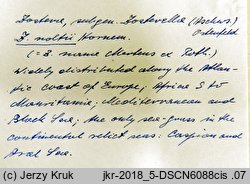 Zostera, subgen. Zosterella (Aschers.)
Ostenfeld
Z. noltii Hornem.
(= Z. nana Mertens ex Roth.)
Widely distributed along the Atlan-
tic coast of Europe; Africa S to
Mauritania; Mediterranean and
Black Sea; the only sea-grass in the
continental relict seas: Caspian and
Aral Sea.
(c) Jerzy Kruk jkr-2018_5-DSCN6088cis_07